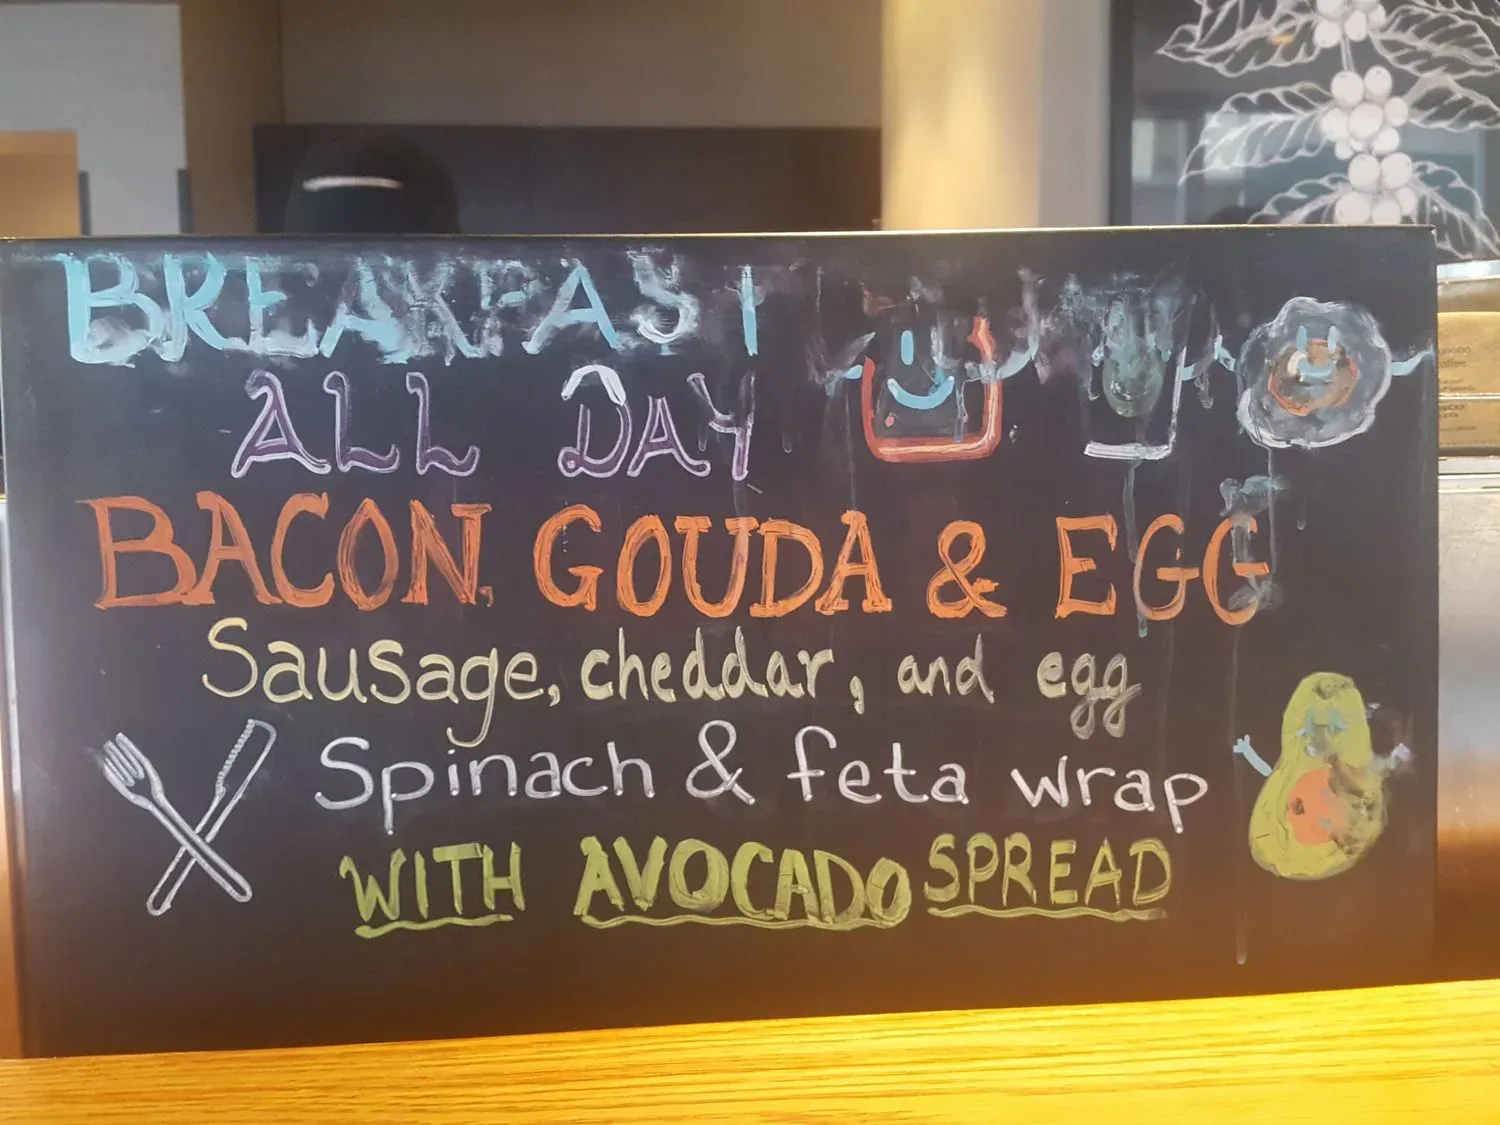 BREAKFAST
ALL DAY
BACON, GOUDA & EGG
Sausage, cheddar, and egg
Spinach & feta wrap
WITH AVOCADO SPREAD